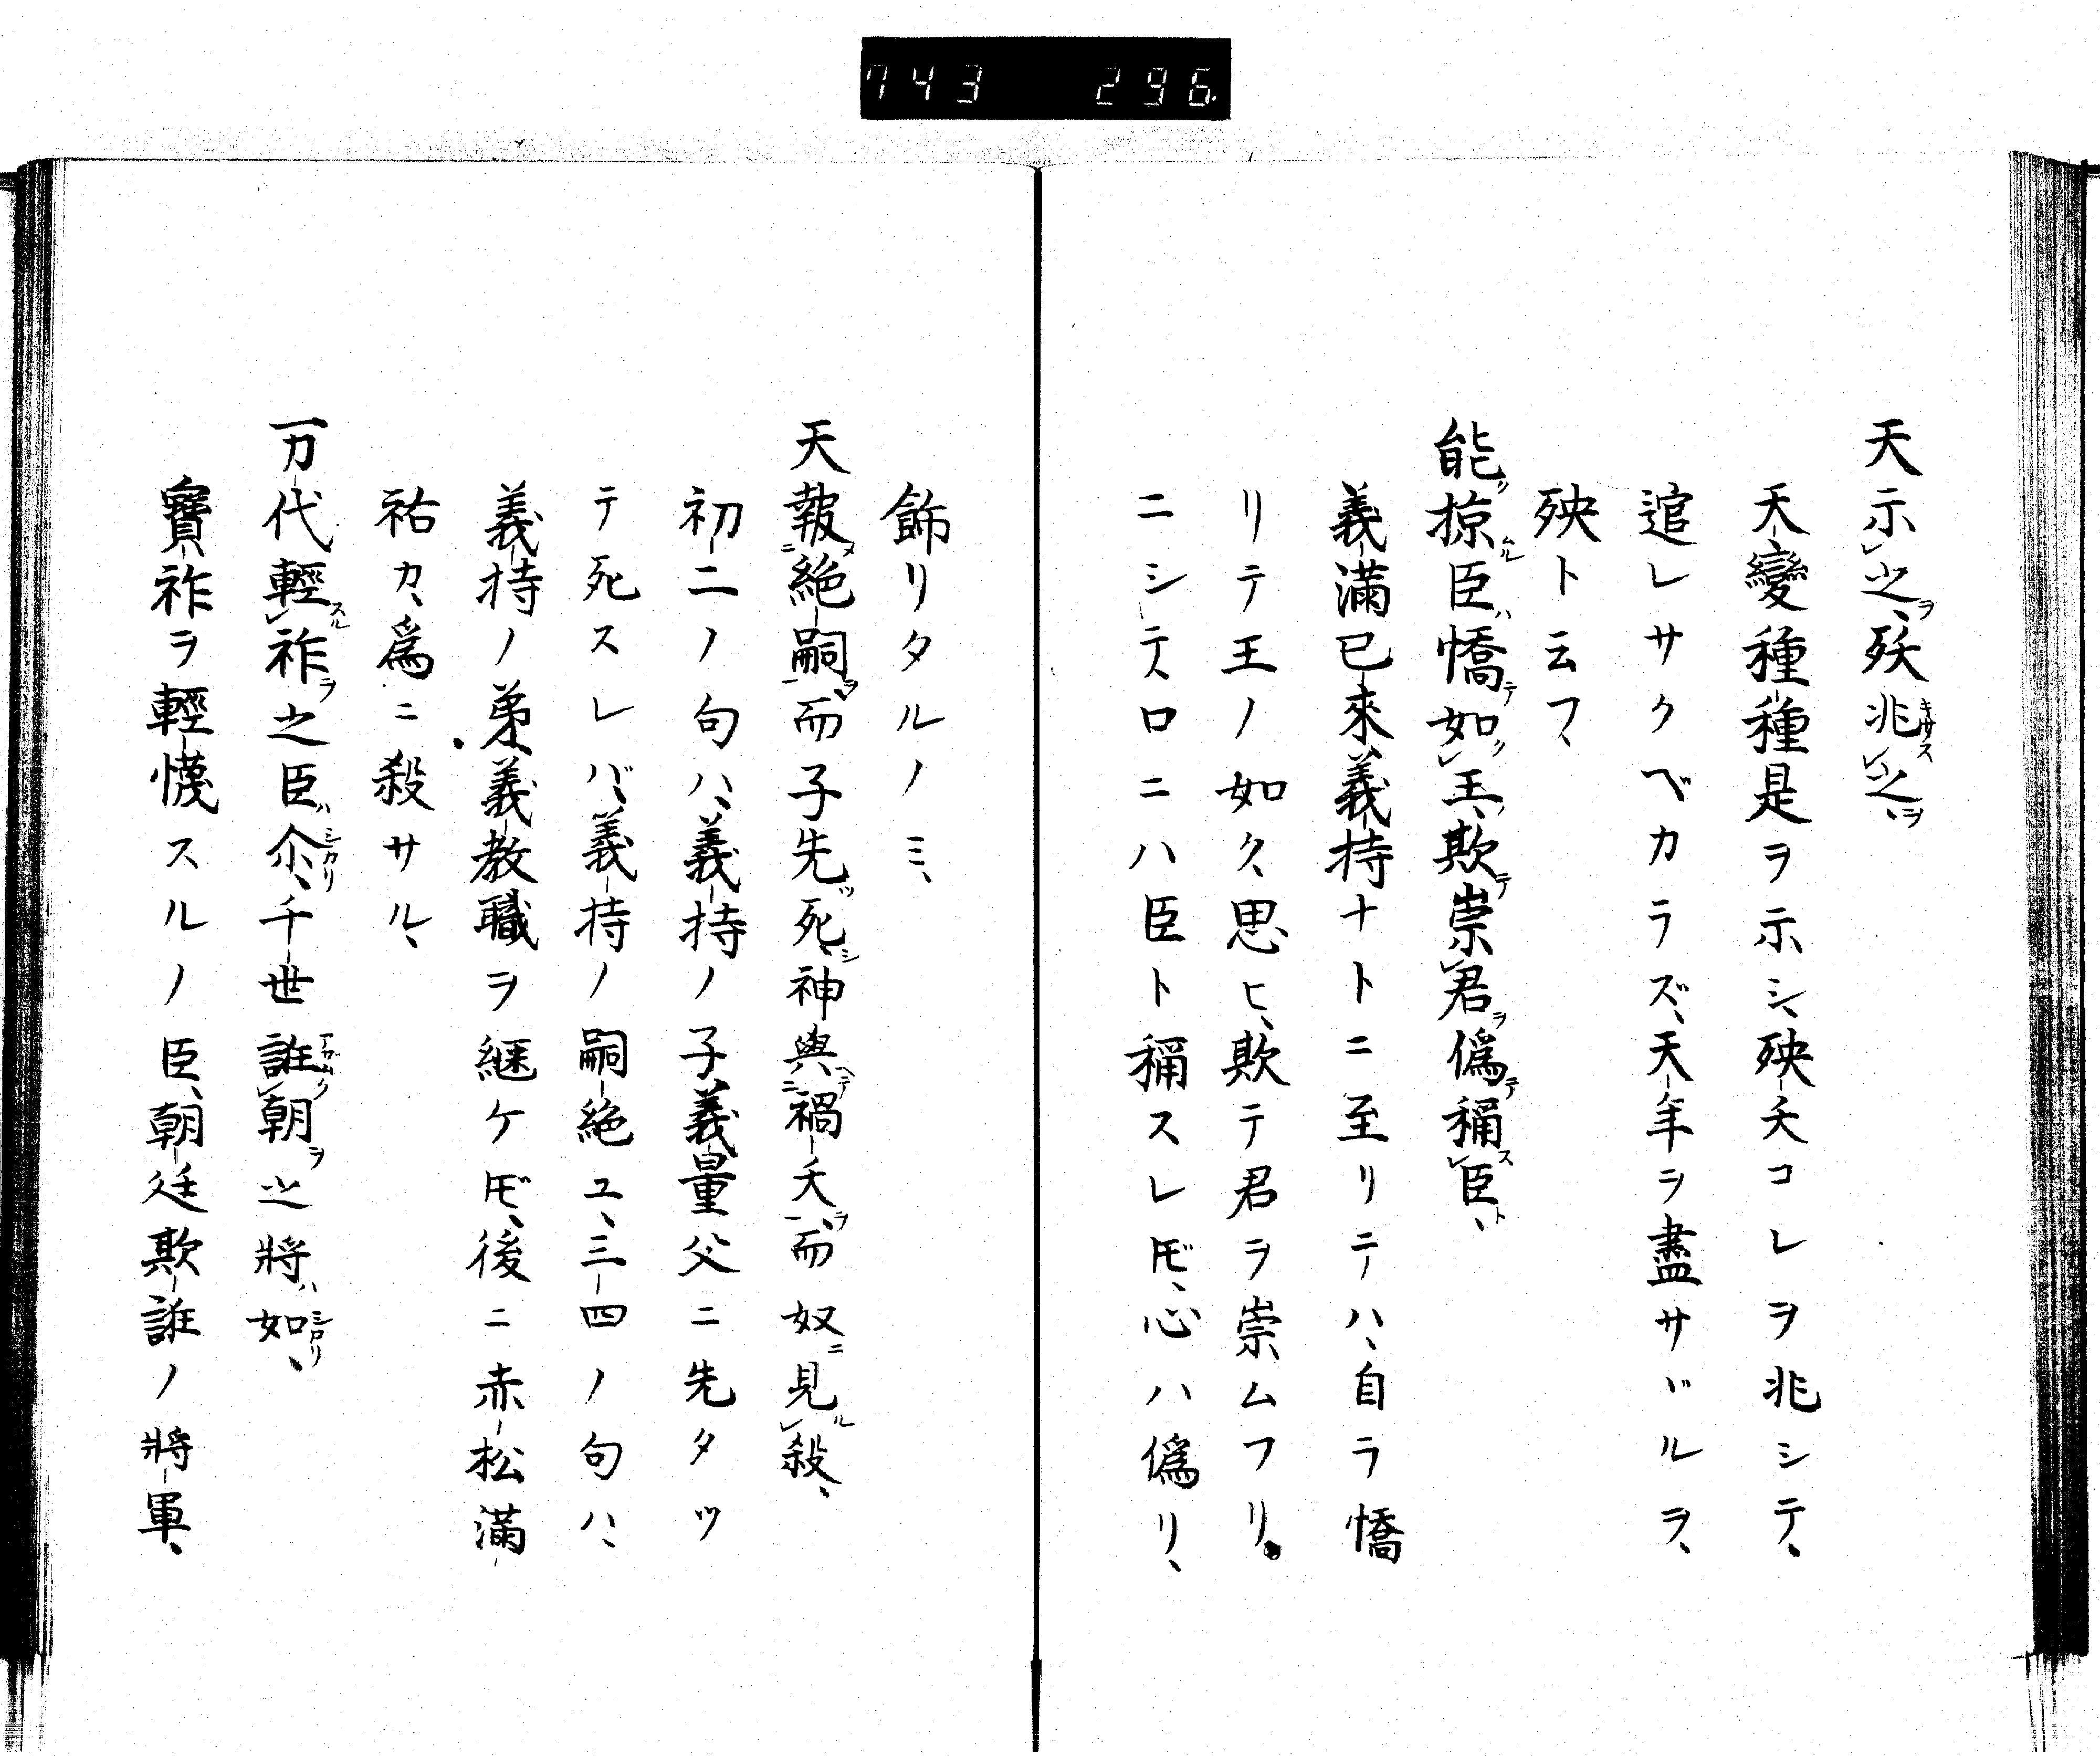 743 296
天示㆑之、殀兆㆑之、
天變種種是ヲ示シ、殃夭コレヲ兆シテ、
逭レサクベカラズ、天年ヲ盡サヾルヲ、
殃ト云フ、
能掠臣憍如㆑王、欺崇㆑君僞稱㆑臣、
義滿已來義持ナトニ至リテハ、自ラ憍
リテ王ノ如ク思ヒ、欺テ君ヲ崇ムフリ
ニシテ、口ニハ臣ト稱スレ𪜈、心ハ僞リ、
飾リタルノミ、
天報㆓絶嗣㆒而子先死、神與㆓禍夭㆒而奴見㆑殺、
初二ノ句ハ、義持ノ子義量父ニ先タツ
テ死スレバ、義持ノ嗣絶ユ、三四ノ句ハ、
義持ノ弟義教職ヲ継ケ𪜈、後ニ赤松滿
祐カ爲ニ殺サル、
万代輕㆑祚之臣尒、千世誑㆑朝之將如、
寶祚ヲ輕懱スルノ臣、朝廷欺誑ノ將軍、